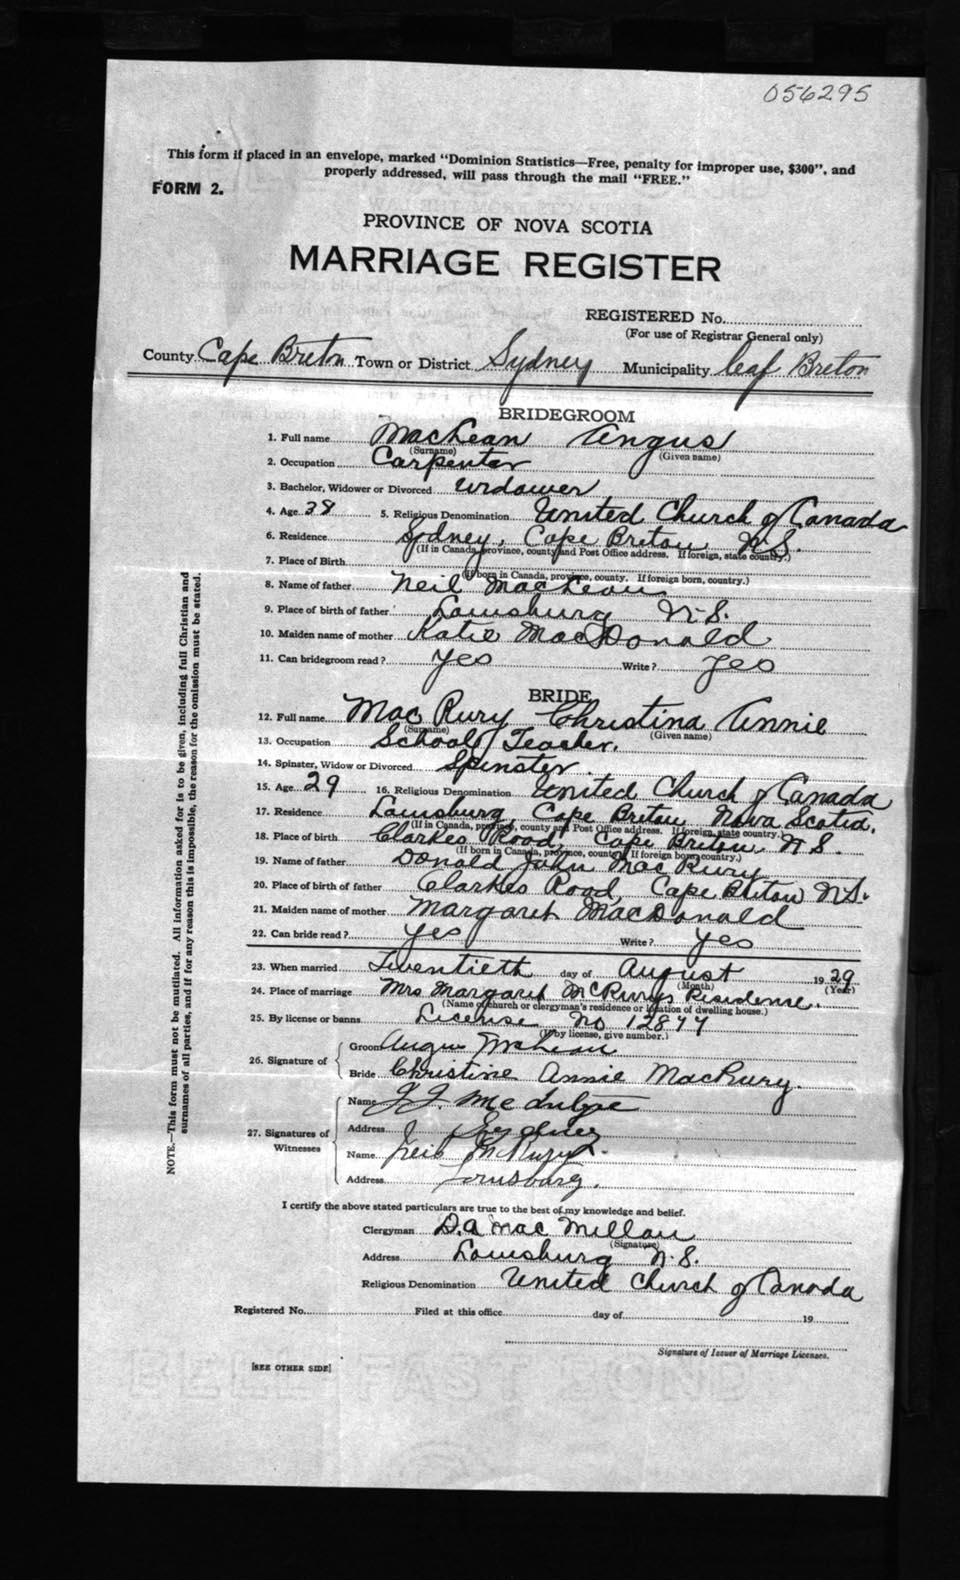 056295
This form if placed in an envelope, marked "Dominion Statistics—Free, penalty for improper use, $300", and
properly addressed, will pass through the mail "FREE."
FORM 2.
PROVINCE OF NOVA SCOTIA
MARRIAGE REGISTER
REGISTERED No.
(For use of Registrar General only)
County Cape Breton Town or District Sydney Municipality Breton
BRIDEGROOM
1. Full name MacLean Angus
(Surname) (Given name)
2. Occupation Carpenter
3. Bachelor, Widower or Divorced Widower
4. Age 38 5. Religious Denomination United Church of Canada
6. Residence Sydney, Cape Breton N.S.
(If in Canada, province, county and Post Office address. If foreign, state country.)
7. Place of Birth
(If born in Canada, province, county. If foreign born, country.)
8. Name of father Neil MacLean
9. Place of birth of father Louisburg N.S.
10. Maiden name of mother Katie MacDonald
11. Can bridegroom read? yes Write? yes
BRIDE
12. Full name MacRury Christina Annie
(Surname) (Given name)
13. Occupation School Teacher.
14. Spinster, Widow or Divorced Spinster.
15. Age 29 16. Religious Denomination United Church of Canada
17. Residence Louisburg, Cape Breton Nova Scotia.
(If in Canada, province, county and Post Office address. If foreign, state country.)
18. Place of birth Clarkes Road, Cape Breton, N.S.
(If born in Canada, province, county. If foreign born, country.)
19. Name of father Donald John MacRury
20. Place of birth of father Clarkes Road, Cape Breton N.S.
21. Maiden name of mother Margaret MacDonald
22. Can bride read? yes Write? yes
23. When married Twentieth day of August 1929
(Month) (Year)
24. Place of marriage Mrs Margaret McRurys Residence.
(Name of church or clergyman's residence or location of dwelling house.)
25. By license or banns License No 12877
(If by license, give number.)
26. Signature of
Groom Angus McLean
Bride Christine Annie MacRury.
27. Signatures of Witnesses
Name
Address Sydney
Name Neil McRury
Address Louisburg.
I certify the above stated particulars are true to the best of my knowledge and belief.
Clergyman D.A. MacMillan
(Signature)
Address Louisburg N.S.
Religious Denomination United Church of Canada
Registered No. Filed at this office day of 19
Signature of Issuer of Marriage Licenses.
[SEE OTHER SIDE]
NOTE.—This form must not be mutilated. All information asked for is to be given, including full Christian and
surnames of all parties, and if for any reason this is impossible, the reason for the omission must be stated.